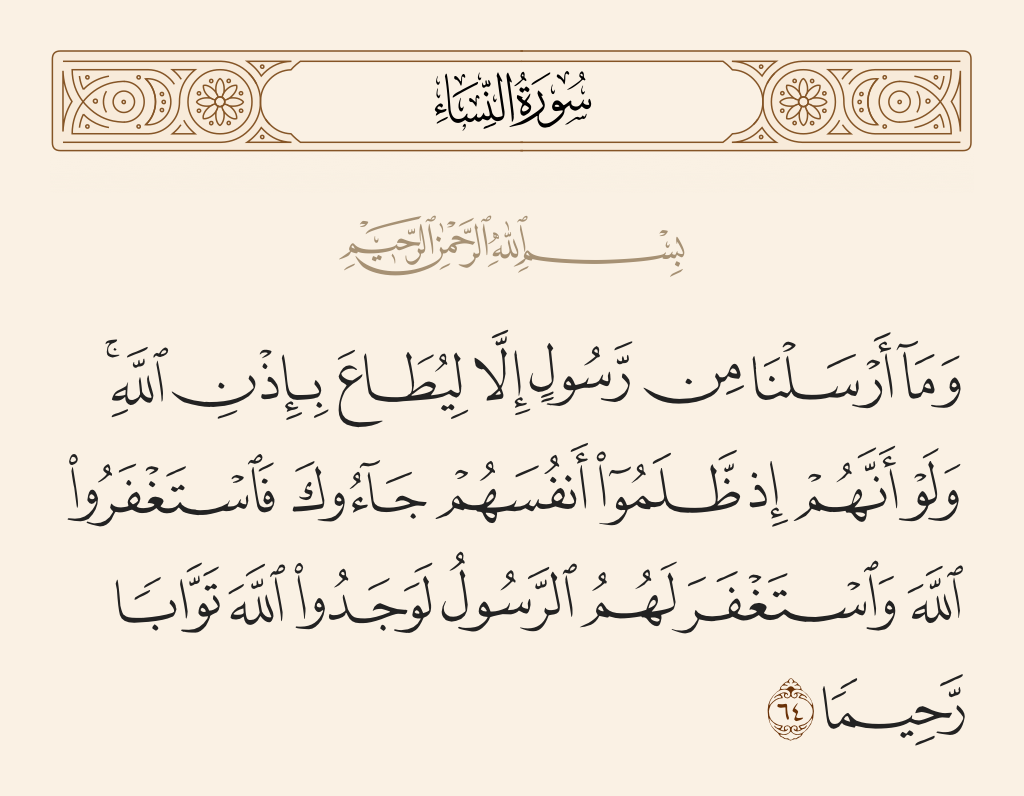 سُورَةُ النِّسَاءِ
بِسْمِ ٱللَّهِ ٱلرَّحْمَٰنِ ٱلرَّحِيمِ
وَمَآ أَرْسَلْنَا مِن رَّسُولٍ إِلَّا لِيُطَاعَ بِإِذْنِ ٱللَّهِ ۚ
وَلَوْ أَنَّهُمْ إِذ ظَّلَمُوٓا۟ أَنفُسَهُمْ جَآءُوكَ فَٱسْتَغْفَرُوا۟
ٱللَّهَ وَٱسْتَغْفَرَ لَهُمُ ٱلرَّسُولُ لَوَجَدُوا۟ ٱللَّهَ تَوَّابًا
رَّحِيمًا ٦٤